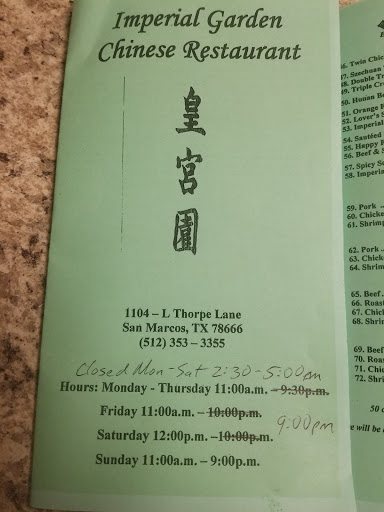 Imperial Garden
Chinese Restaurant
皇
宮
園
1104 – L Thorpe Lane
San Marcos, TX 78666
(512) 353 – 3355
Closed Mon-Sat 2:30-5:00pm
Hours: Monday - Thursday 11:00a.m. – 9:30p.m.
Friday 11:00a.m. – 10:00p.m.
9:00pm
Saturday 12:00p.m. – 10:00p.m.
Sunday 11:00a.m. – 9:00p.m.
46. Twin Chic
47. Szechuan
48. Double Tr
49. Triple Cr
50. Hunan Be
51. Orange
52. Lover's
53. Imperial
54. Sautéed
55. Happy
56. Beef & S
57. Spicy
58. Imperia
59. Pork ..
60. Chicke
61. Shrimp
62. Pork ..
63. Chick
64. Shrim
65. Beef
66. Roast
67. Chic
68. Shri
69. Beef
70. Roas
71. Chic
72. Shri
50
e will be